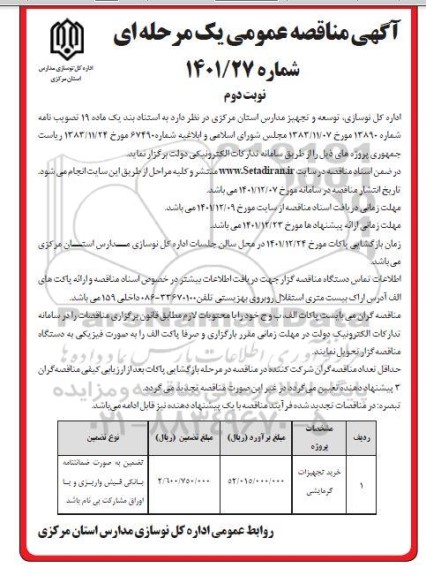 آگهی مناقصه عمومی یک مرحله ای
شماره ۱۴۰۱/۲۷
نوبت دوم
اداره کل نوسازی مدارس
استان مرکزی
اداره کل نوسازی، توسعه و تجهیز مدارس استان مرکزی در نظر دارد به استناد بند یک ماده ۱۹ تصویب نامه
شماره ۱۳۸۹۰ مورخ ۱۳۸۳/۱۱/۰۷ مجلس شورای اسلامی و ابلاغیه شماره ۶۷۴۹۰ مورخ ۱۳۸۳/۱۱/۲۴ ریاست
جمهوری پروژه های ذیل را از طریق سامانه تدارکات الکترونیکی دولت برگزار نماید.
در ضمن اسناد مناقصه در سایت www.Setadiran.ir منتشر و کلیه مراحل از طریق این سایت انجام می شود.
تاریخ انتشار مناقصه در سامانه مورخ ۱۴۰۱/۱۲/۰۷ می باشد.
مهلت زمانی دریافت اسناد مناقصه از سایت مورخ ۱۴۰۱/۱۲/۰۹ می باشد.
مهلت زمانی ارائه پیشنهاد ها مورخ ۱۴۰۱/۱۲/۲۳ می باشد.
زمان بازگشایی پاکات مورخ ۱۴۰۱/۱۲/۲۴ در محل سالن جلسات اداره کل نوسازی مدارس استان مرکزی
می باشد.
اطلاعات تماس دستگاه مناقصه گزار جهت دریافت اطلاعات بیشتر در خصوص اسناد مناقصه و ارائه پاکت های
الف آدرس اراک بیست متری استقلال روبروی بهزیستی تلفن ۳۳۶۷۰۱۰۰-۰۸۶ داخلی ۱۵۹ می باشد.
مناقصه گران می بایست پاکات الف، ب و ج خود را با محتویات لازم مطابق قانون برگزاری مناقصات را در سامانه
تدارکات الکترونیک دولت در مهلت زمانی مقرر بارگزاری و صرفا پاکت الف را به صورت فیزیکی به دستگاه
مناقصه گزار تحویل نمایند.
حداقل تعداد مناقصه گران شرکت کننده در مناقصه در مرحله بازگشایی پاکات بعد از ارزیابی کیفی مناقصه گران
۳ پیشنهاد دهنده تعیین می گردد در غیر این صورت مناقصه تجدید می گردد.
تبصره: در مناقصات تجدید شده فرآیند مناقصه با یک پیشنهاد دهنده نیز قابل ادامه می باشد.
ردیف مشخصات پروژه مبلغ برآورد (ریال) مبلغ تضمین (ریال) نوع تضمین
۱ خرید تجهیزات گرمایشی ۵۲/۰۱۵/۰۰۰/۰۰۰ ۲/۶۰۰/۷۵۰/۰۰۰ تضمین به صورت ضمانتنامه
بانکی فیش واریزی و یا
اوراق مشارکت بی نام باشد
روابط عمومی اداره کل نوسازی مدارس استان مرکزی